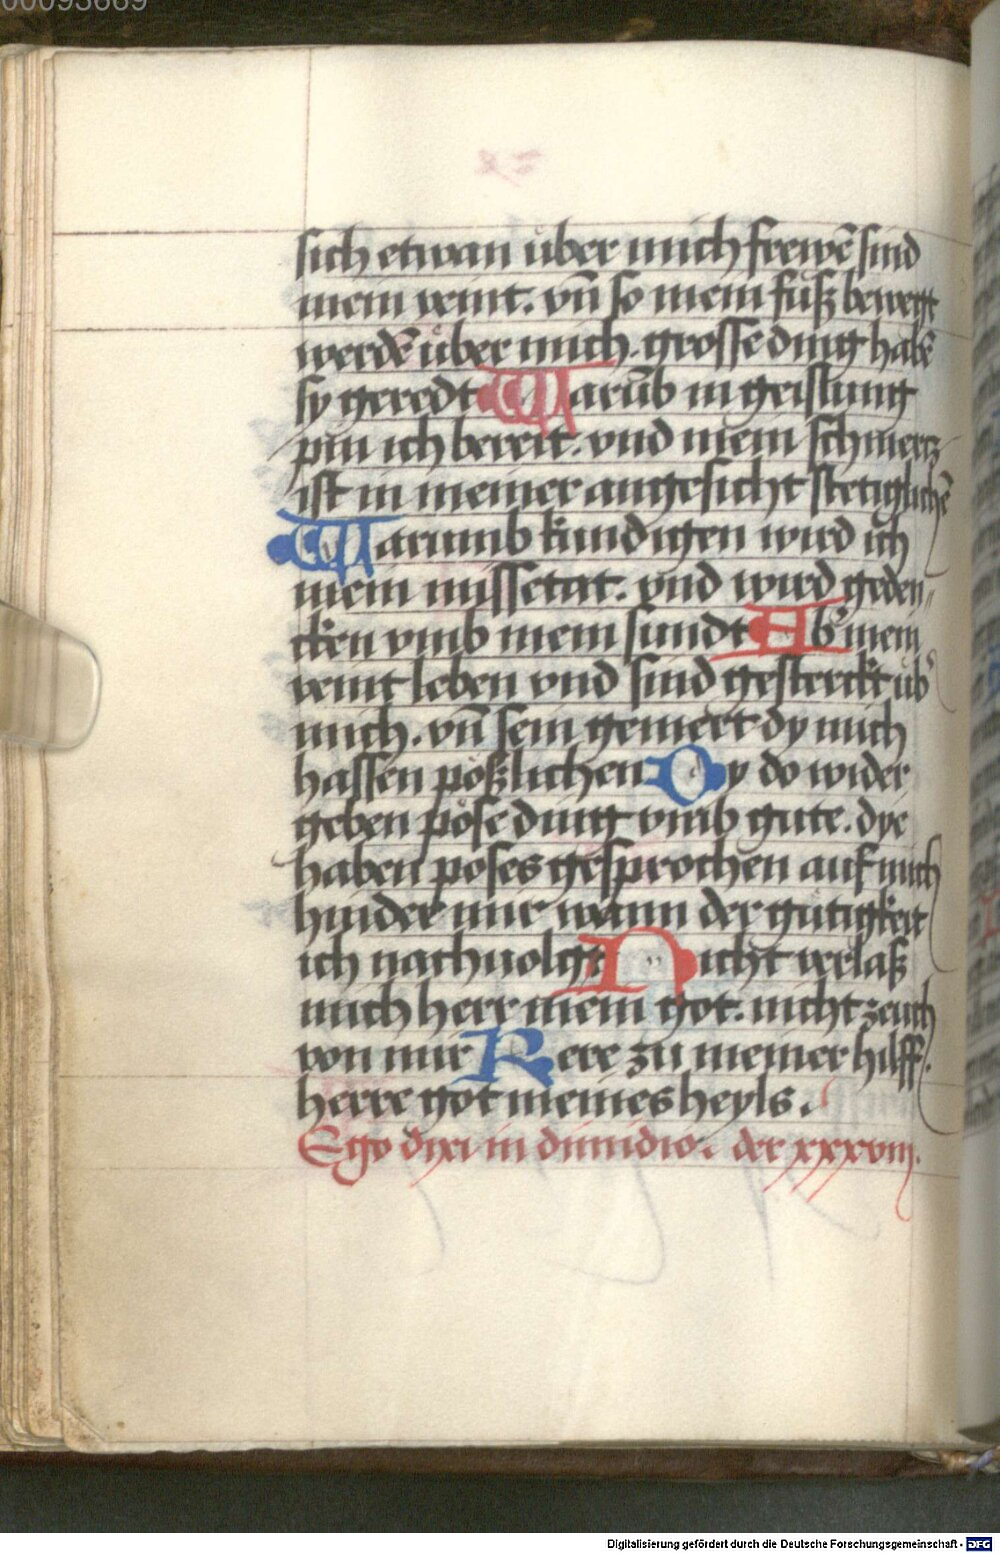 00093669
sich etwan über mich frewē sind
mein veint. vn̄ so mein fuß bewegt
werdē über mich. grosse ding habē
sy geredt Warūb in geislung
pin ich bereit. vnd mein schmercz
ist in meiner angesicht stetiglichē
Warumb kundigen wird ich
mein missetat. vnd wird geden„
cken vmb mein sundt Ab' mein
veint leben vnd sind gesterckt üb'
mich. vn̄ sein gemert dy mich
hassen pößlichen Dy do wider
geben pöse ding vmb gute. dye
haben poses gesprochen auf mich
hinder mir wann der gutigkeit
ich nachuolge Nicht verlaß
mich herr mein got. nicht zeuch
von mir Kere zu meiner hilff.
herre got meines heyls.
Ego dixi in dimidio. der xxxviij.
Digitalisierung gefördert durch die Deutsche Forschungsgemeinschaft - DFG